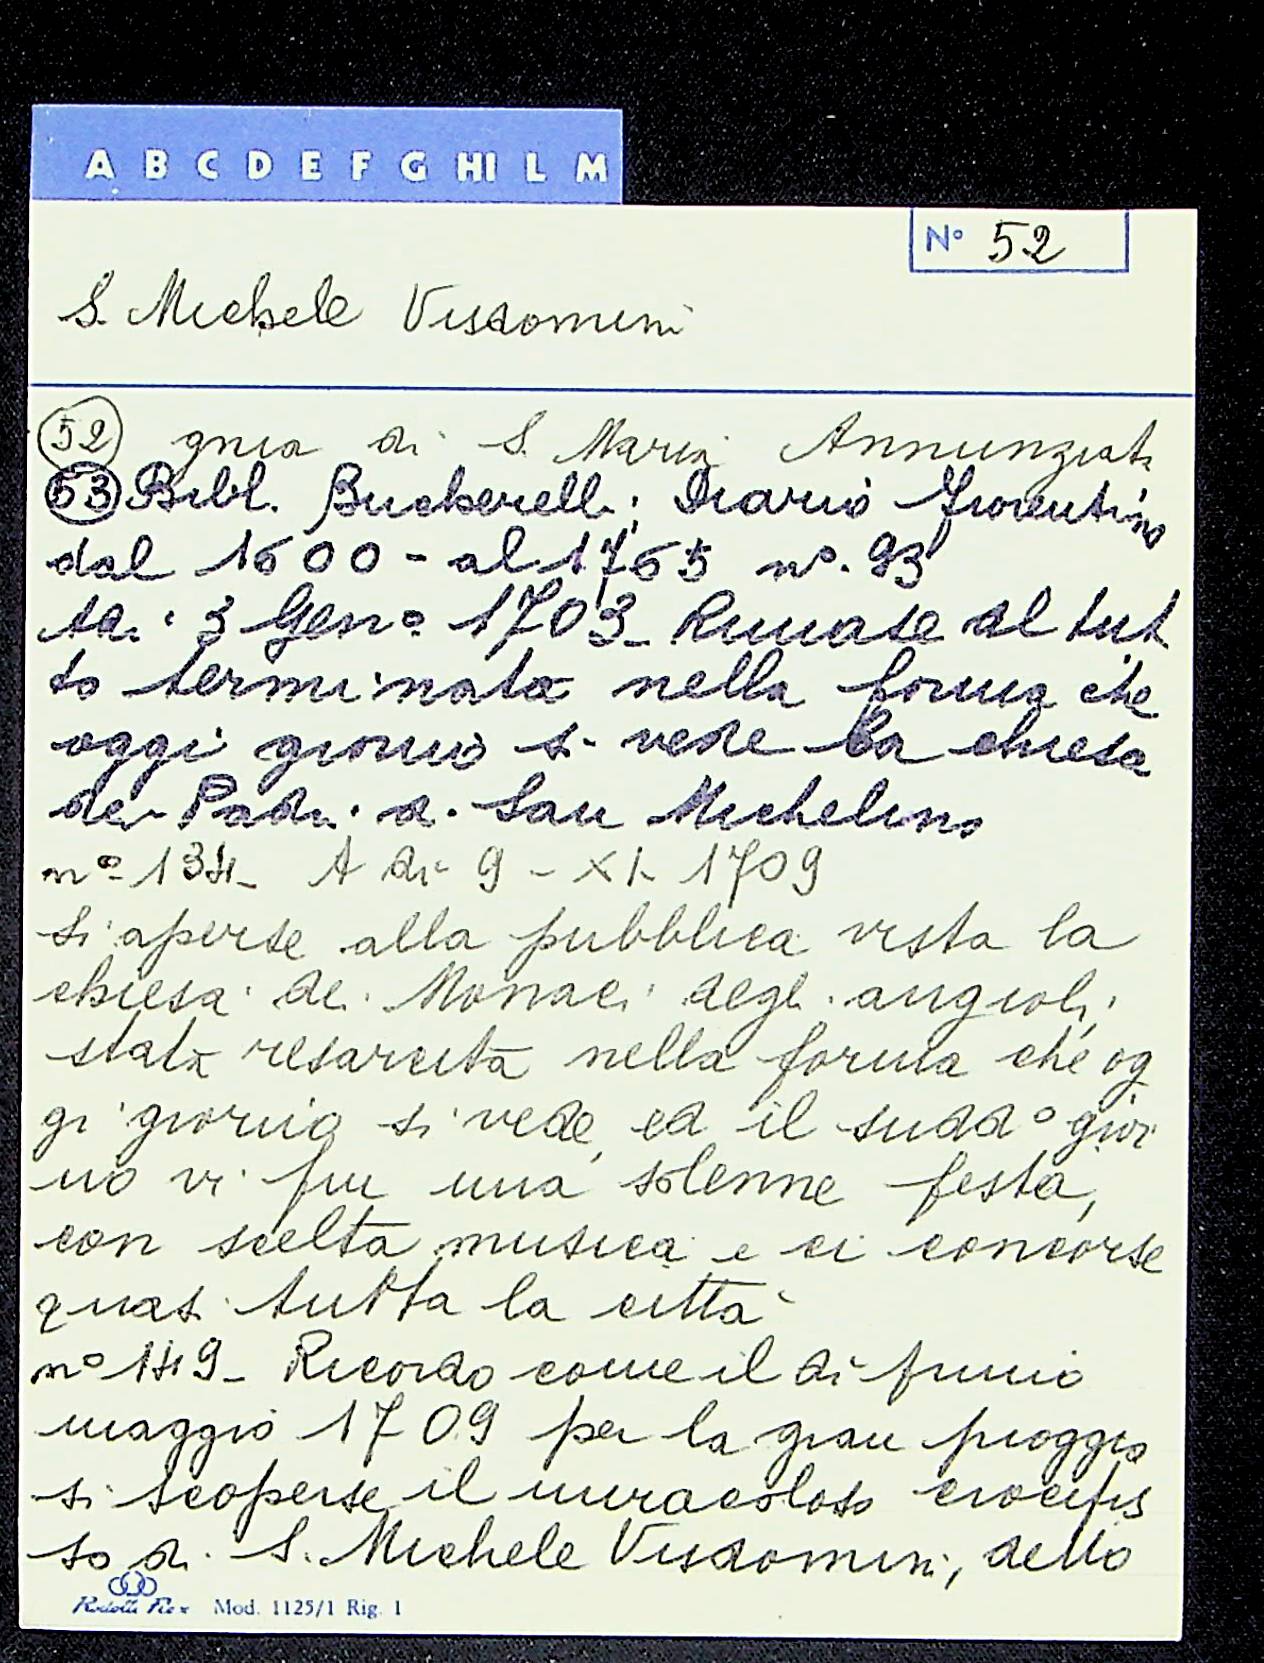 A B C D E F G HI L M
Nº 52
S. Michele Visdomini
52 gnia di S. Maria Annunziata
53 Bibl. Buckerelli; Diario Fiorentino
dal 1600 - al 1765 nº. 93
3 Genº 1703_ Rimase al tut
to terminata nella forma che
oggi giorno si vede la chiesa
dei Padri di San Michelino
nº 134_ A di 9 - XI - 1709
si aperse alla pubblica vista la
chiesa dei Monaci degli angioli,
stata resarcita nella forma che og
gi giorno si vede, ed il suddº gior
no vi fu una solenne festa,
con scelta musica e ci concorse
quasi tutta la città
nº 149_ Ricordo come il dì primo
maggio 1709 per la gran pioggia
si scoperse il miracoloso crocifis
so di S. Michele Visdomini, detto
Mod. 1125/1 Rig. 1